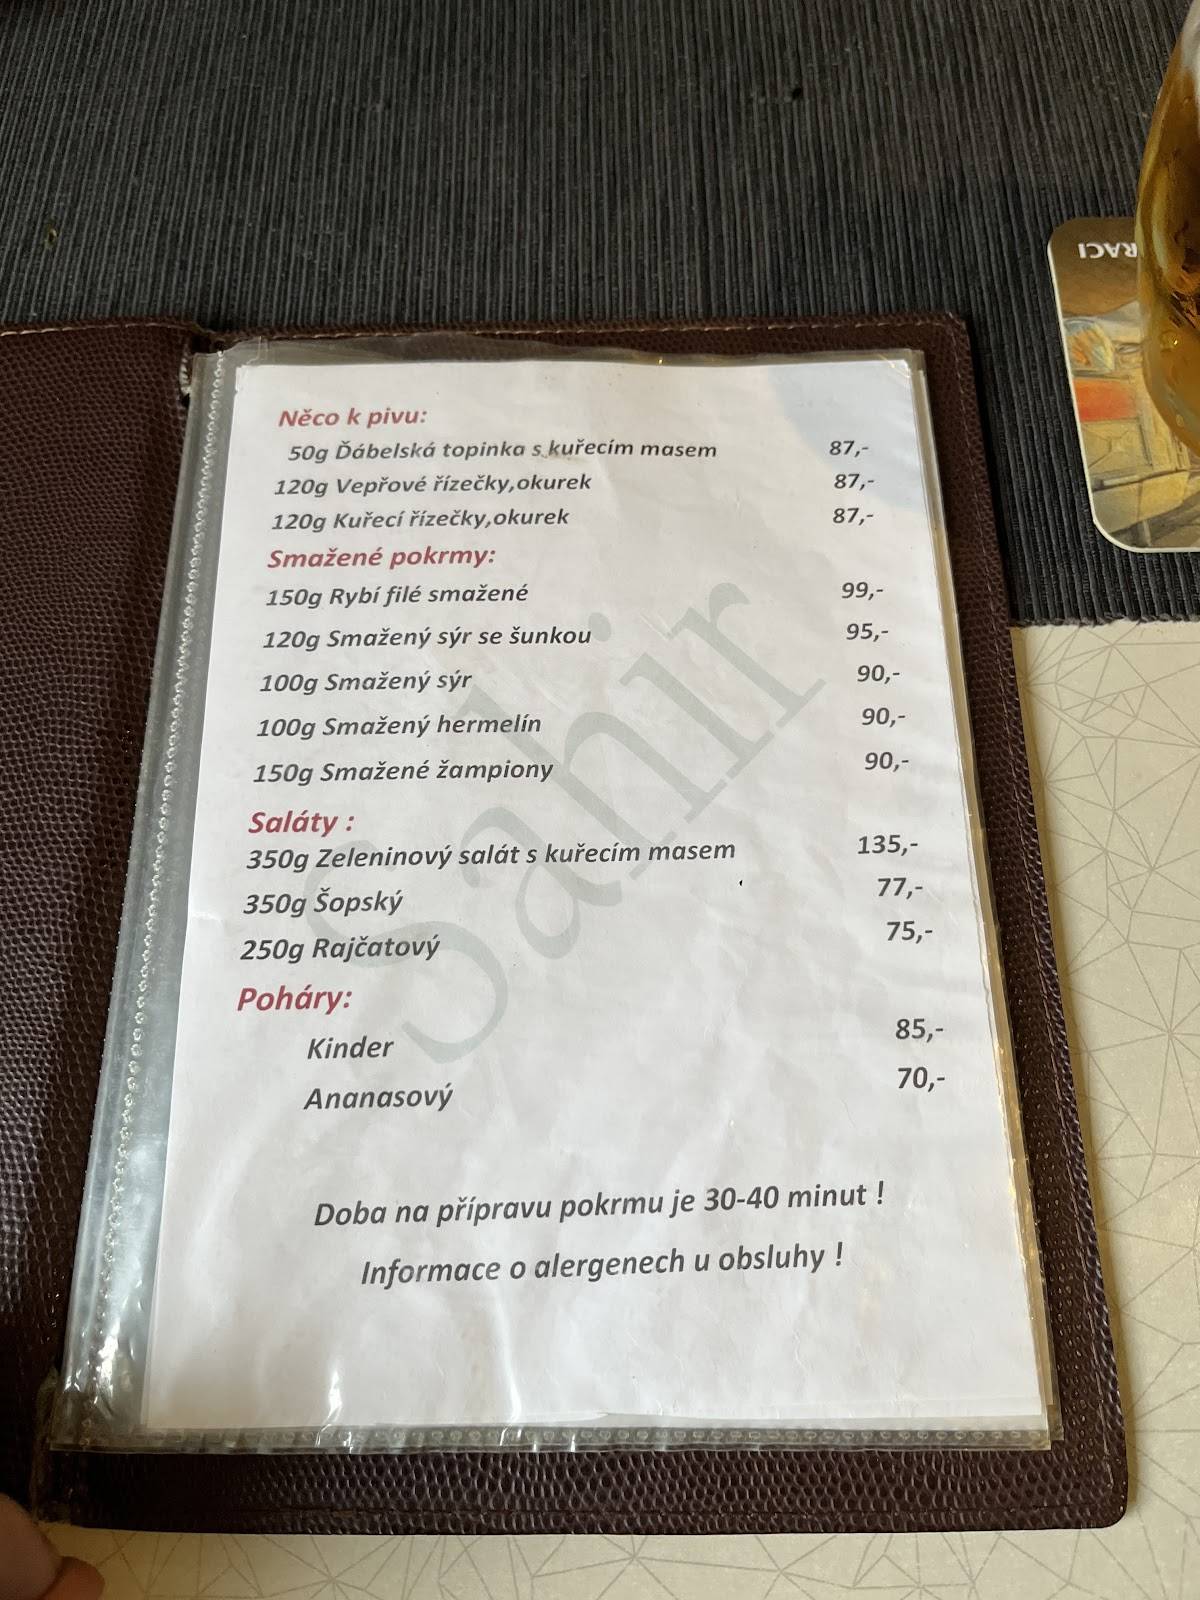 RACI
Něco k pivu:
50g Ďábelská topinka s kuřecím masem 87,-
120g Vepřové řízečky,okurek 87,-
120g Kuřecí řízečky,okurek 87,-
Smažené pokrmy:
150g Rybí filé smažené 99,-
120g Smažený sýr se šunkou 95,-
100g Smažený sýr 90,-
100g Smažený hermelín 90,-
150g Smažené žampiony 90,-
Saláty :
350g Zeleninový salát s kuřecím masem 135,-
350g Šopský 77,-
250g Rajčatový 75,-
Poháry:
Kinder 85,-
Ananasový 70,-
Doba na přípravu pokrmu je 30-40 minut !
Informace o alergenech u obsluhy !
Sahir